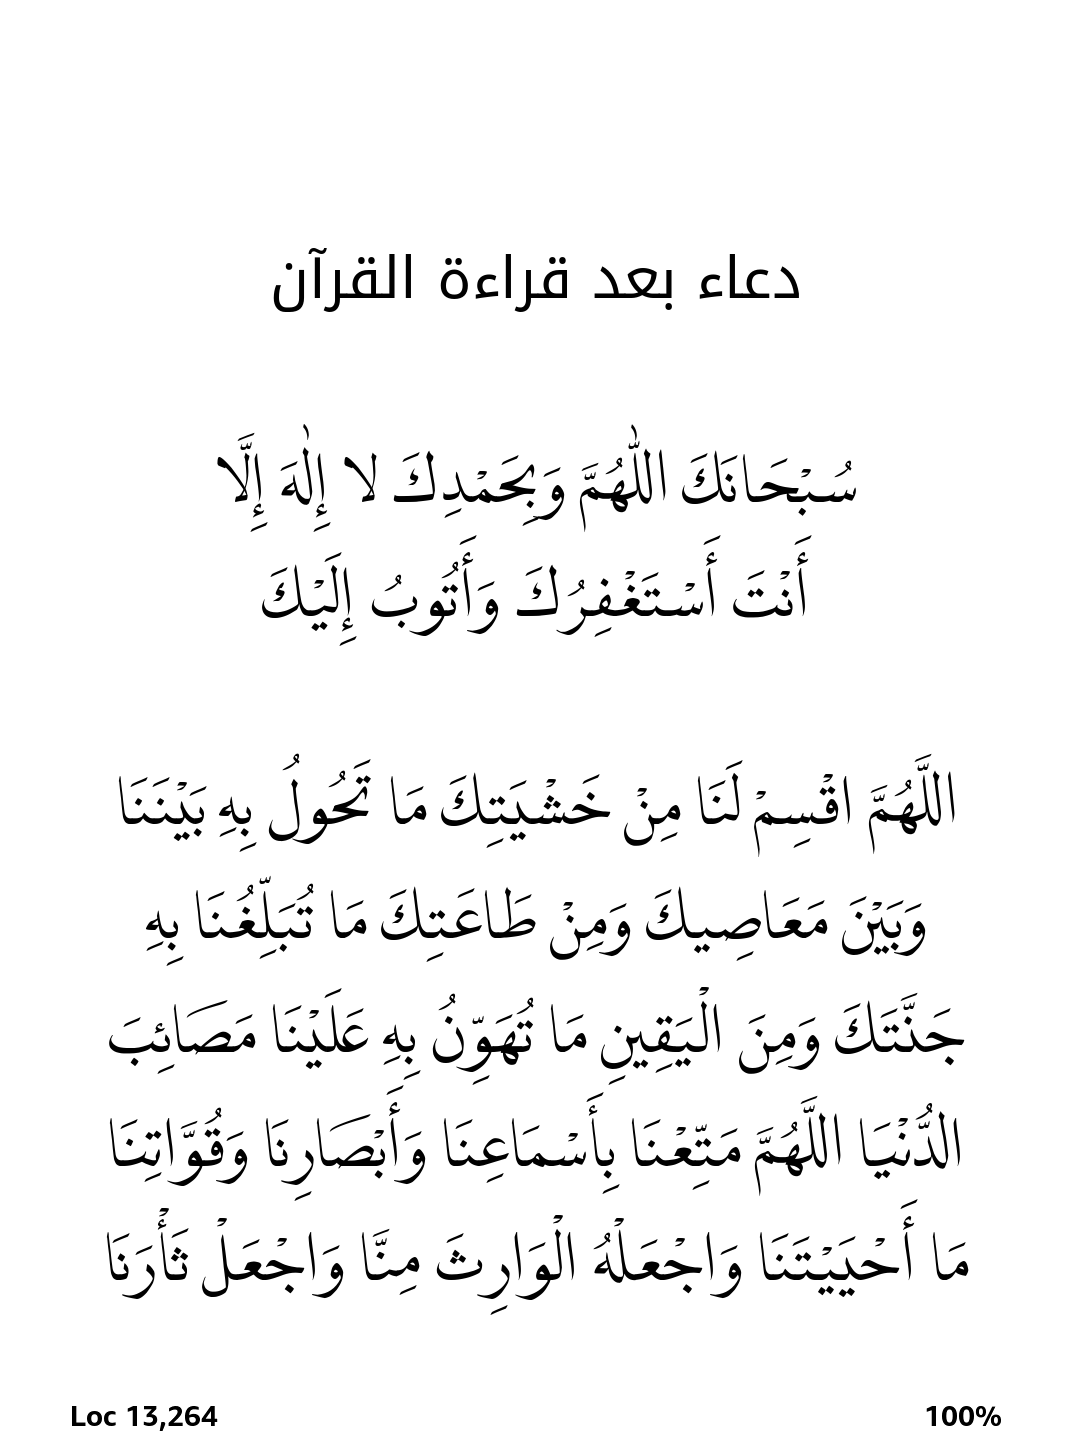 دعاء بعد قراءة القرآن
سُبْحَانَكَ اللّٰهُمَّ وَبِحَمْدِكَ لا إِلٰهَ إِلَّا
أَنْتَ أَسْتَغْفِرُكَ وَأَتُوبُ إِلَيْكَ
اللَّهُمَّ اقْسِمْ لَنَا مِنْ خَشْيَتِكَ مَا تَحُولُ بِهِ بَيْنَنَا
وَبَيْنَ مَعَاصِيكَ وَمِنْ طَاعَتِكَ مَا تُبَلِّغُنَا بِهِ
جَنَّتَكَ وَمِنَ الْيَقِينِ مَا تُهَوِّنُ بِهِ عَلَيْنَا مَصَائِبَ
الدُّنْيَا اللَّهُمَّ مَتِّعْنَا بِأَسْمَاعِنَا وَأَبْصَارِنَا وَقُوَّاتِنَا
مَا أَحْيَيْتَنَا وَاجْعَلْهُ الْوَارِثَ مِنَّا وَاجْعَلْ ثَأْرَنَا
Loc 13,264 100%